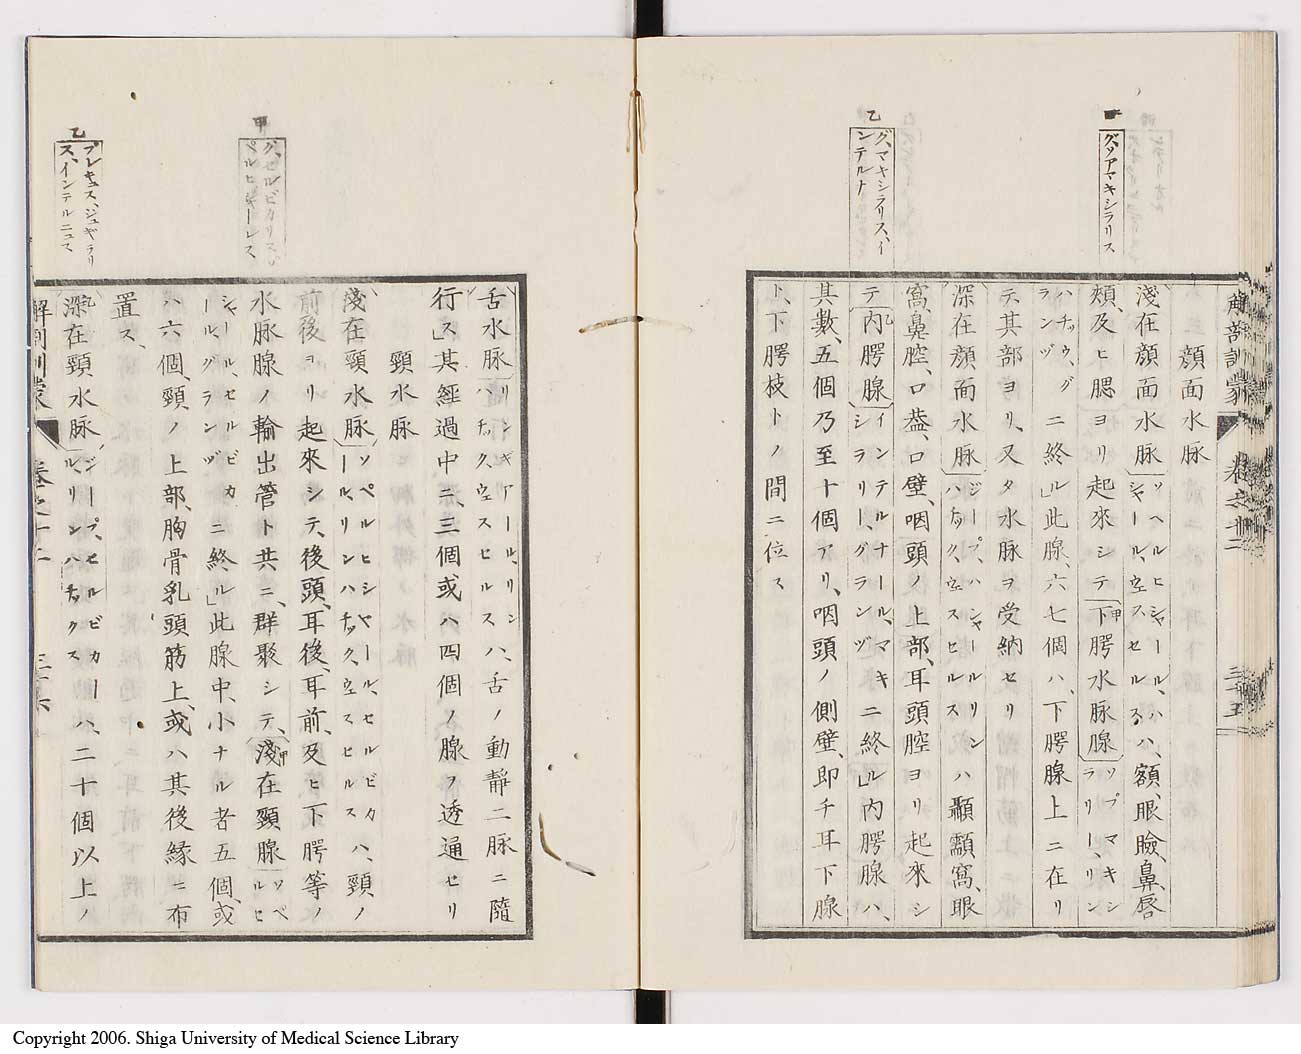 解剖訓蒙
卷之十二
三十五
グ、ソプマキシラリス
乙
グ、マキシラリス、イ
ンテルナ
顔面水脉
淺在顔面水脉ソペルヒシヤール、ハシャール、ウェスセルスハ、額、眼瞼、鼻、唇
頬、及ヒ腮ヨリ起來シテ甲下腭水脉腺ソプマキシラリー、リン
ハチック、グランヅニ終ル」此腺、六七個ハ、下腭腺上ニ在リ
テ其部ヨリ、又タ水脉ヲ受納セリ
深在顔面水脉ジープ、ハシャールリンハチック、ウェスセルスハ顳顬窩、眼
窩、鼻腔、口葢、口壁、咽頭ノ上部、耳頭腔ヨリ起來シ
テ乙内腭腺インテルナール、マキシラリー、グランヅニ終ル」内腭腺ハ、
其數、五個乃至十個アリ、咽頭ノ側壁、即チ耳下腺
ト、下腭枝トノ間ニ位ス
甲
グ、セルビカリス、ソ
ペルヒシャーレス
乙
プレキュス、ジュギュラリ
ス、インテルニュス
舌水脉リンギアール、リンハチック、ウェスセルスハ、舌ノ動靜二脉ニ隨
行ス」其經過中ニ、三個或ハ四個ノ腺ヲ透通セリ
頸水脉
淺在頸水脉ソペルヒシヤール、セルビカール、リンハチック、ウェスセルスハ、頸ノ
前後ヨリ起來シテ、後頭、耳後、耳前、及ヒ下腭等ノ
水脉腺ノ輸出管ト共ニ、群聚シテ、甲淺在頸腺ソペルヒ
シャール、セルビカール、グランヅニ終ル」此腺中、小ナル者五個、或
ハ六個、頸ノ上部、胸骨乳頭筋上、或ハ其後縁ニ布
置ス、
乙深在頸水脉ジープ、セルビカール、リンハチックスハ、二十個以上ノ
解剖訓蒙
卷之十二
三十六
Copyright 2006. Shiga University of Medical Science Library